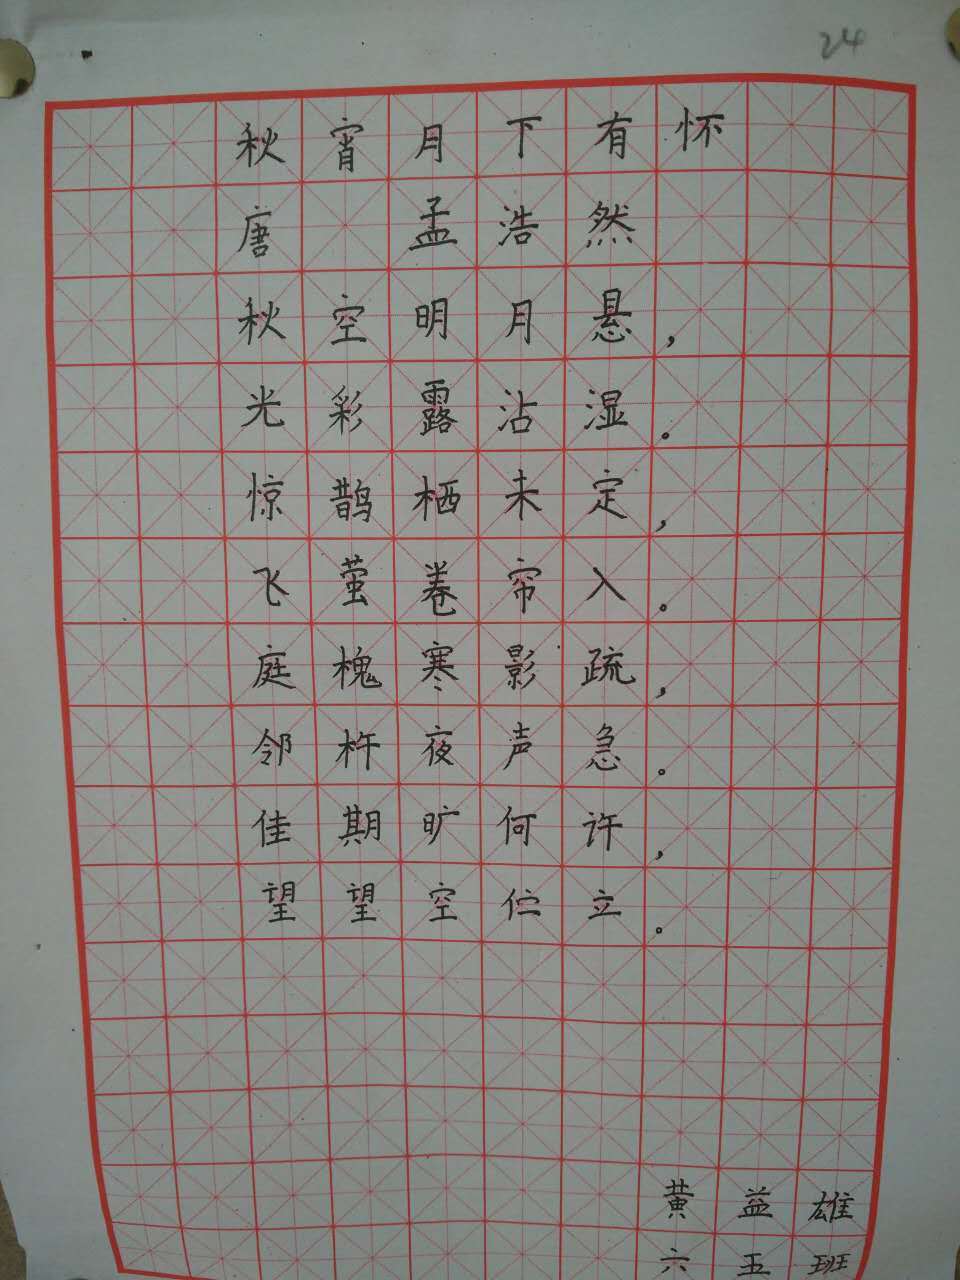 24
秋宵月下有怀
唐 孟浩然
秋空明月悬，
光彩露沾湿。
惊鹊栖未定，
飞萤卷帘入。
庭槐寒影疏，
邻杵夜声急。
佳期旷何许，
望望空伫立。
黄益雄
六五班